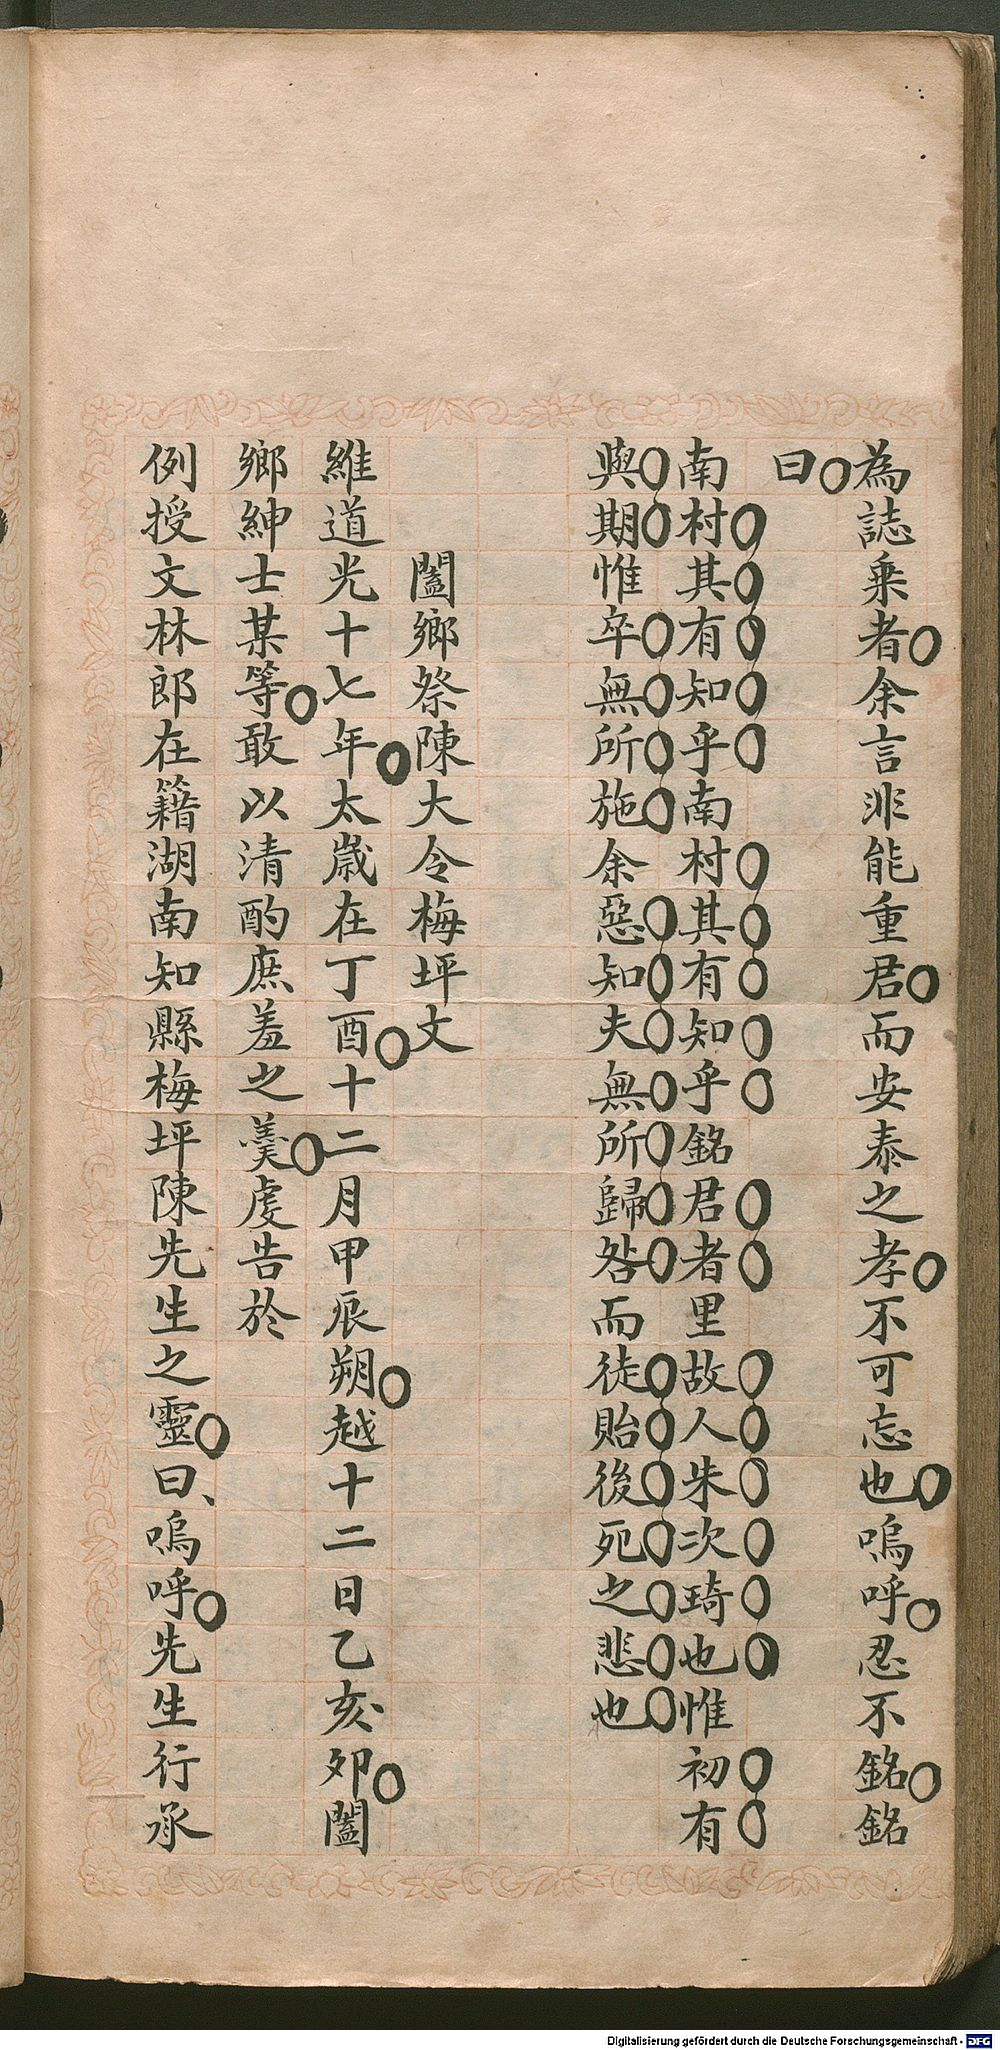 為誌乘者余言非能重君而安泰之孝不可忘也嗚呼忍不銘銘
曰
南村其有知乎南村其有知乎銘君者里故人朱次琦也惟初有
與期惟卒無所施余惡知夫無所歸咎而徒貽後死之悲也
闔鄉祭陳大令梅坪文
維道光十七年太歲在丁酉十二月甲辰朔越十二日乙亥卯闔
鄉紳士某等敢以清酌庶羞之羹虔告於
例授文林郎在籍湖南知縣梅坪陳先生之靈曰、嗚呼先生行承
Digitalisierung gefördert durch die Deutsche Forschungsgemeinschaft - DFG